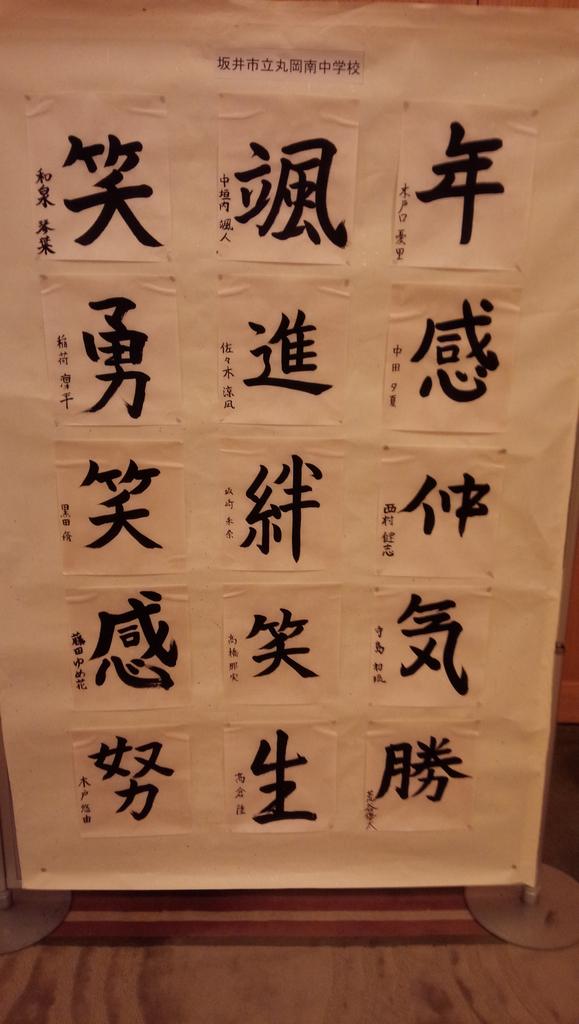 坂井市立丸岡南中学校
年
木戸口 憂里
颯
中垣内 颯人
笑
和泉 琴葉
感
中田 夕夏
進
佐々木 涼風
勇
稲荷 凛平
仲
西村 健志
絆
笑
黒田 脩
気
寺島
笑
高橋 那実
感
藤田 ゆめ花
勝
生
高倉 陸
努
木戸 悠由